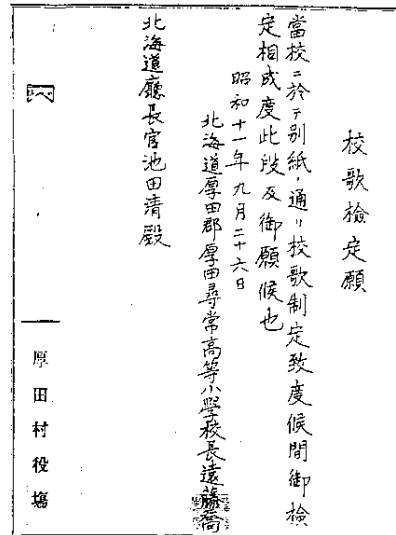 校歌檢定願
當校ニ於テ別紙ノ通リ校歌制定致度候間御檢
定相成度此段及御願候也
昭和十一年九月二十六日
北海道厚田郡厚田尋常高等小學校長遠藤喬
北海道廳長官池田清殿
厚田村役塲